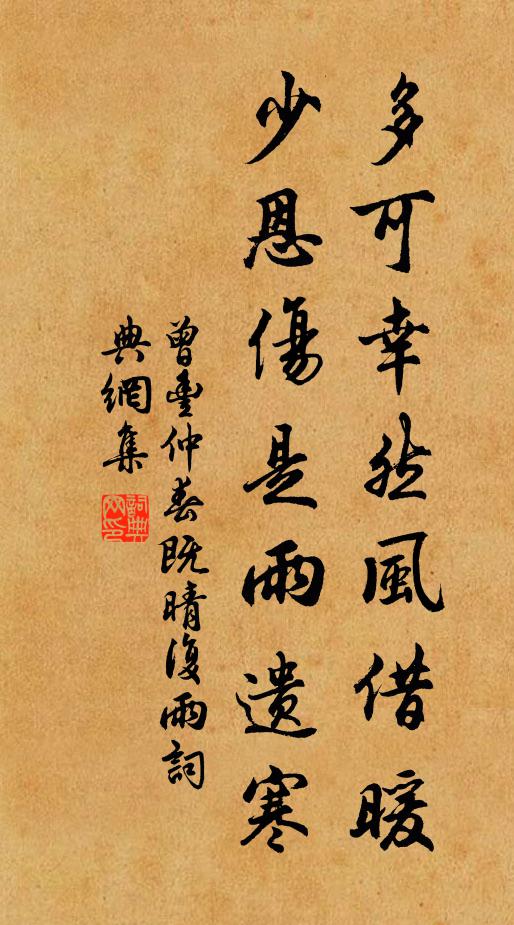 多可幸然風借暖
少恩傷是雨遺寒
曾豐仲春既晴復雨詞
典網集
詞典网印